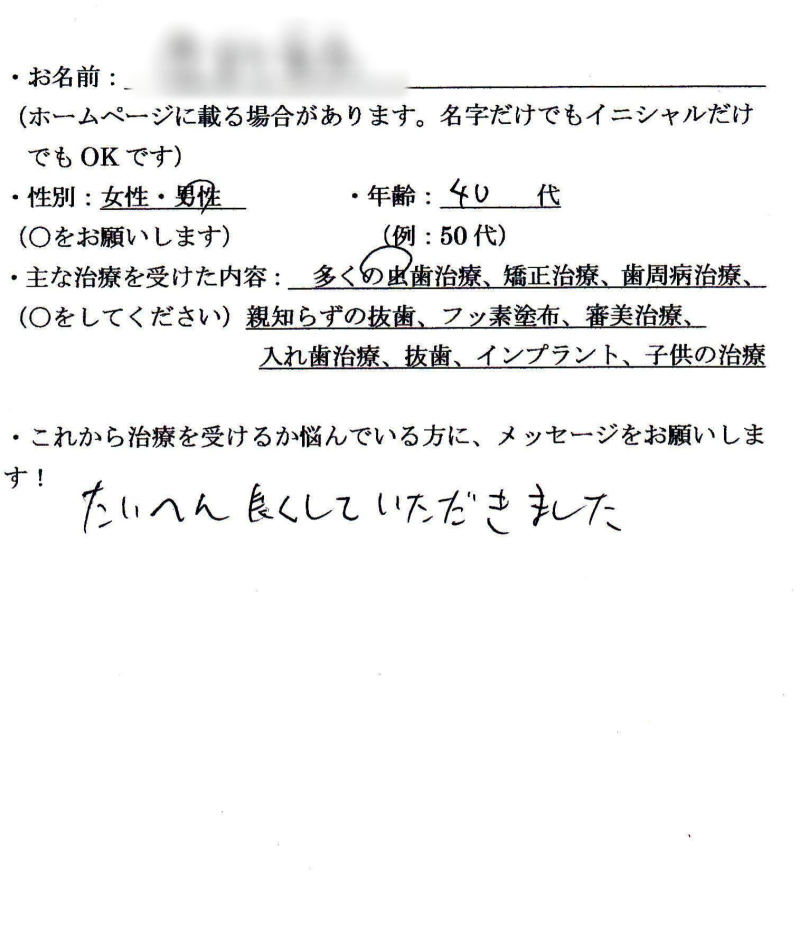 ・お名前：
（ホームページに載る場合があります。名字だけでもイニシャルだけ
でも OK です）
・性別：女性・男性　・年齢：40 代
（〇をお願いします）　（例：50 代）
・主な治療を受けた内容：　多くの虫歯治療、矯正治療、歯周病治療、
（〇をしてください）親知らずの抜歯、フッ素塗布、審美治療、
入れ歯治療、抜歯、インプラント、子供の治療
・これから治療を受けるか悩んでいる方に、メッセージをお願いしま
す！
たいへん良くしていただきました